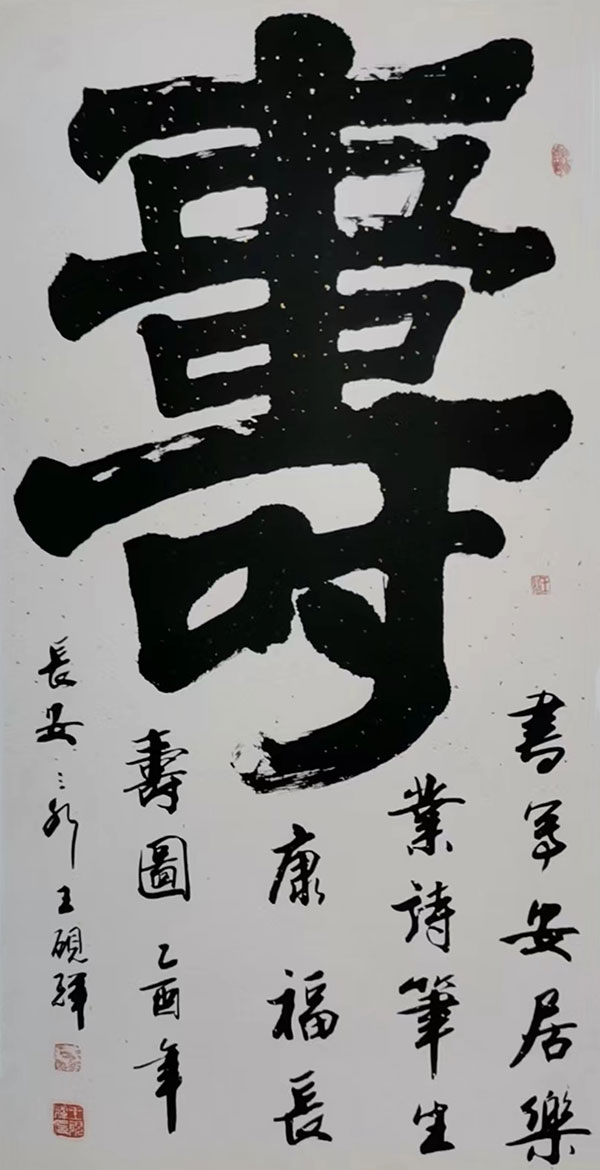 壽
書写安居樂
業詩筆生
康福長
壽圖 乙酉年
長安 王硯輝